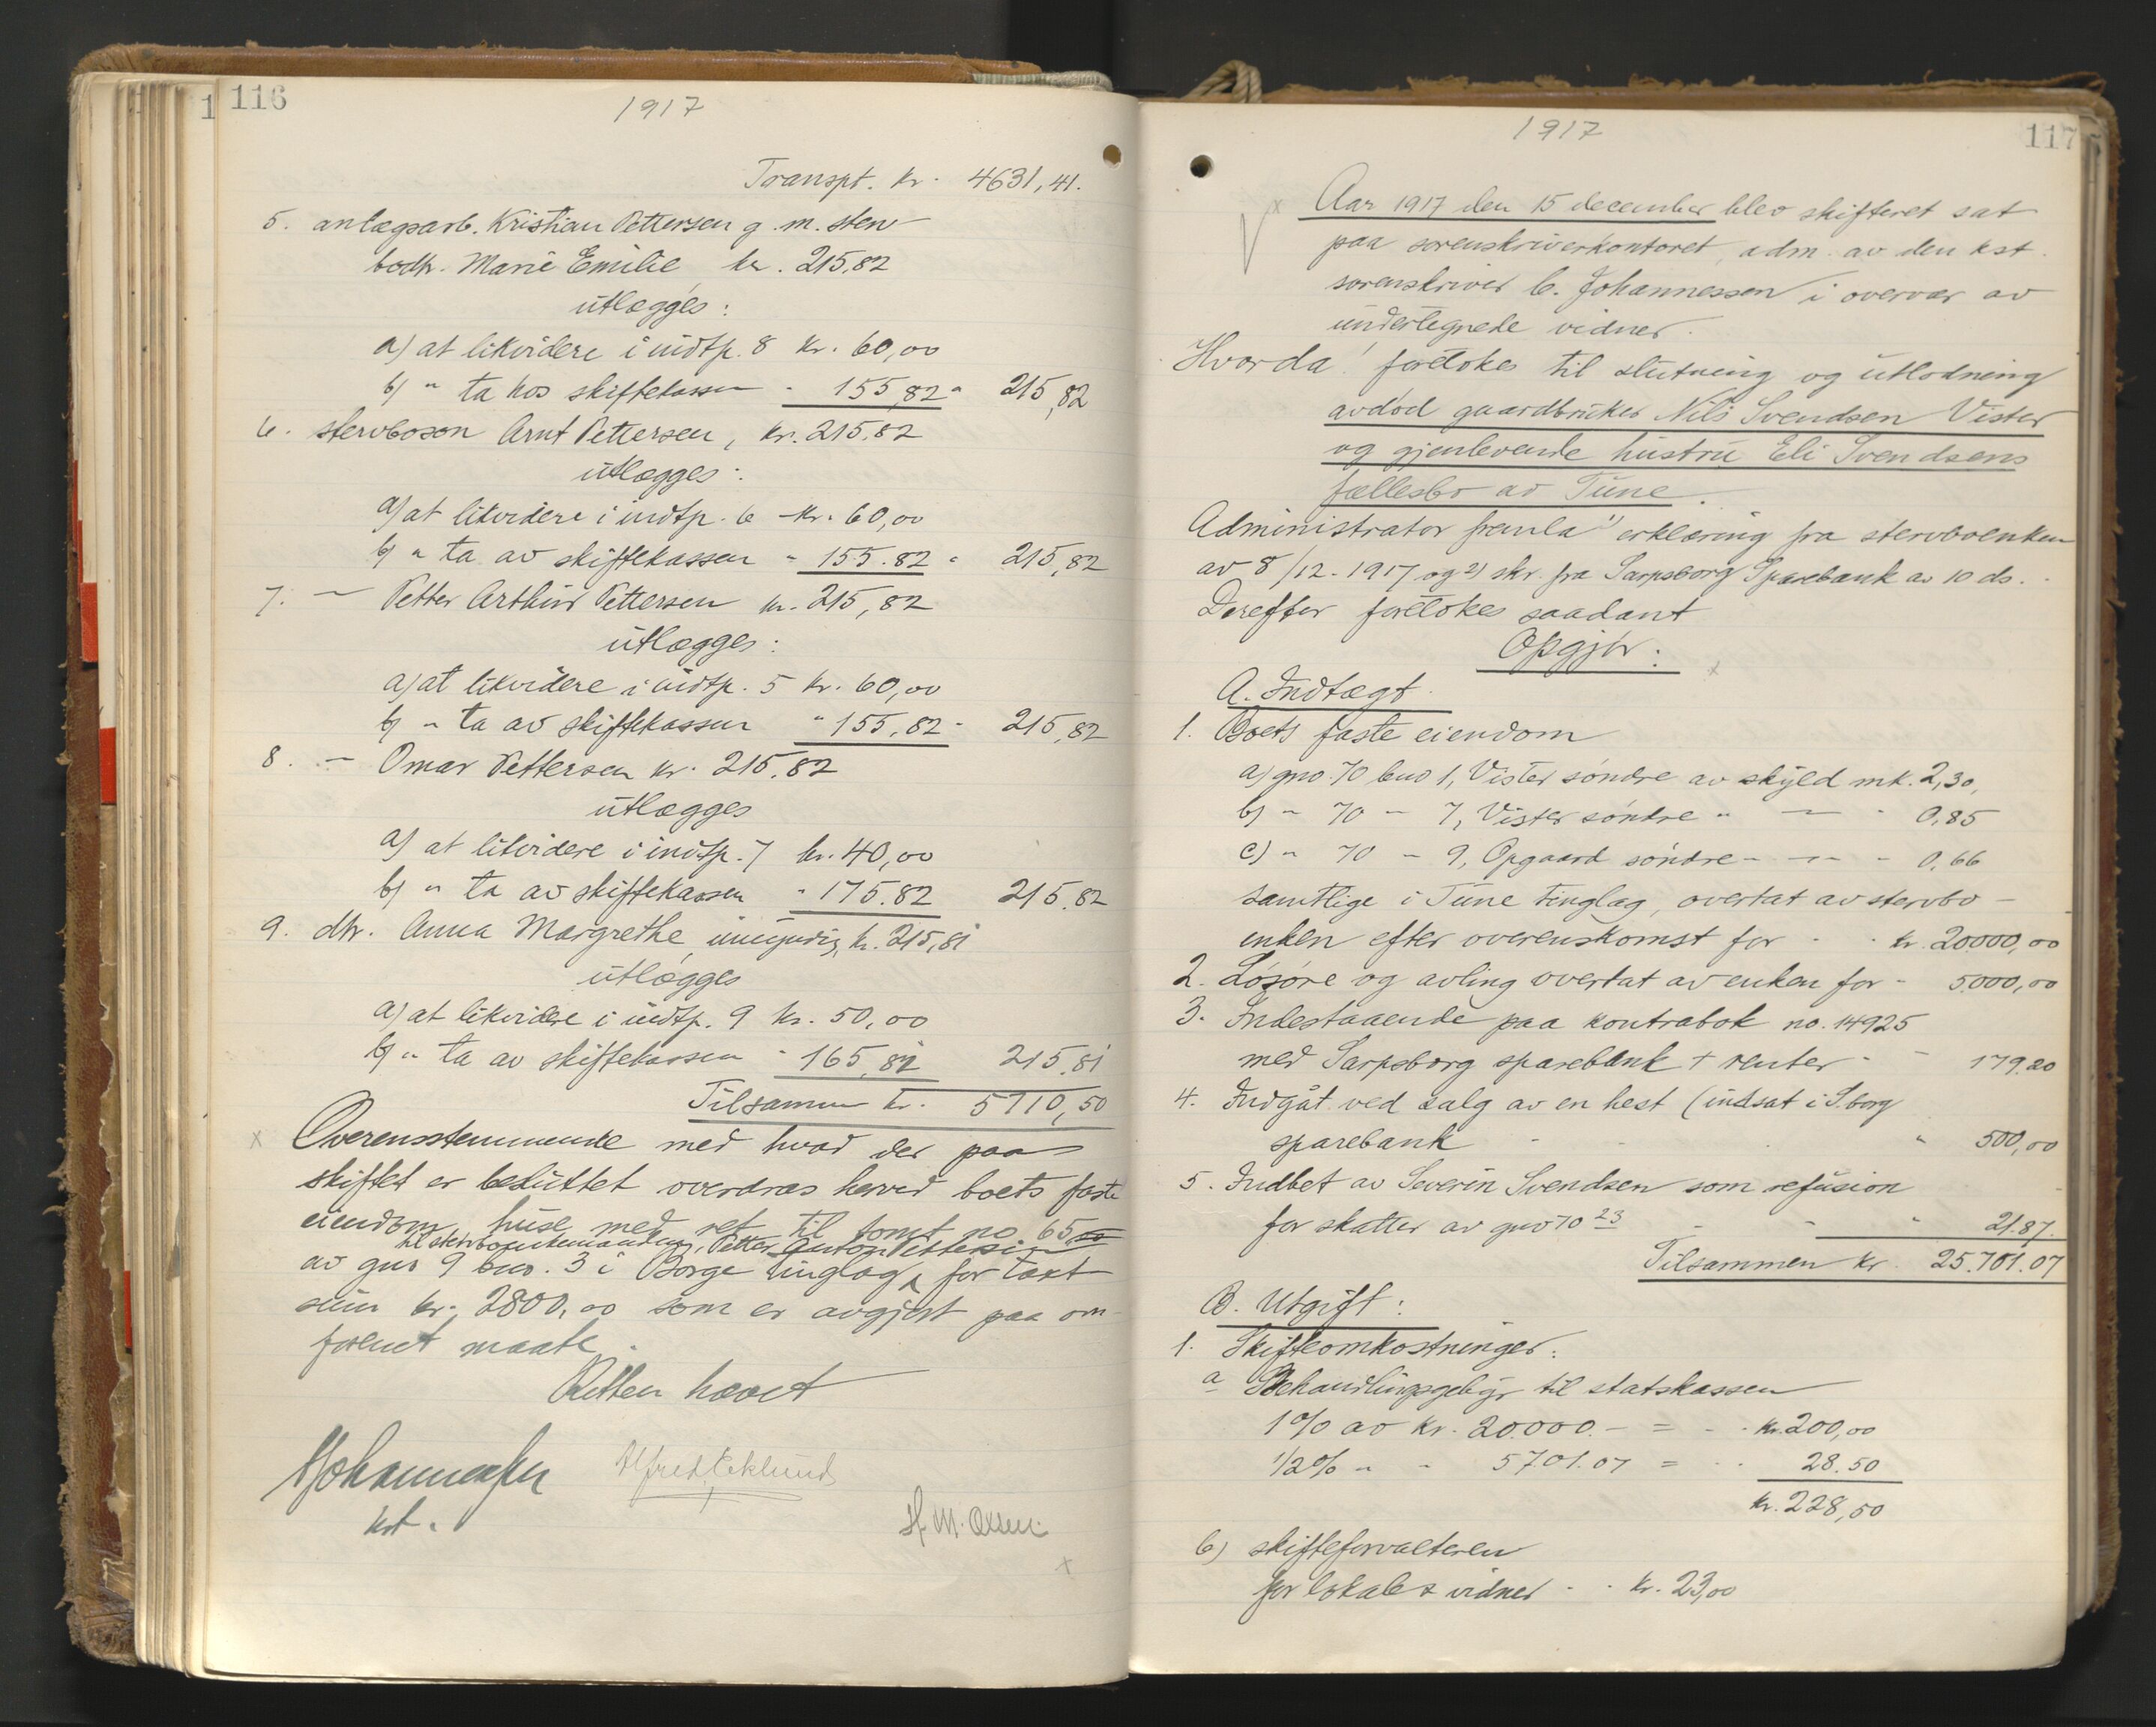 116
1917
Transpt. kr. 4631,41.
5. anlægsarb. Kristian Pettersen g. m. sterv-
bodtr. Marie Emilie kr. 215,82
utlægges:
a) at likvidere i indtp. 8 kr. 60,00
b) " ta hos skiftekassen " 155,82 " 215,82
6. stervboson Arnt Pettersen, kr. 215,82
utlægges:
a) at likvidere i indtp. 6 kr. 60,00
b) " ta av skiftekassen " 155.82 " 215,82
7. — Petter Arthur Pettersen kr. 215,82
utlægges:
a) at likvidere i indtp. 5 kr. 60,00
b) " ta av skiftekassen " 155,82 " 215,82
8. — Omar Pettersen kr. 215,82
utlægges
a) at likvidere i indtp. 7 kr. 40,00
b) " ta av skiftekassen " 175.82 215.82
9. dtr. Anna Margrethe, umyndig, kr. 215,81
utlægges
a) at likvidere i indtp. 9 kr. 50,00
b) " ta av skiftekassen " 165,81 215,81
Tilsammen kr. 5710,50
Overensstemmende med hvad der paa
skiftet er besluttet overdras herved boets faste
eiendom, huse med ret til tomt no 65
til stervboenkemanden, Petter Anton Pettersen
av gno 9 bno. 3 i Borge tinglag for takst
sum kr. 2800,00 som er avgjort paa om-
forenet maate.
Retten hævet
Johannessen
kst.
Alfred Eklund
H. M. Olsen
117
1917
Aar 1917 den 15 december blev skifteret sat
paa sorenskriverkontoret, adm. av den kst.
sorenskriver C. Johannessen i overvær av
undertegnede vidner.
Hvorda! foretokes til slutning og utlodning
avdød gaardbruker Nils Svendsen Vister
og gjenlevende hustru Eli Svendsens
fællesbo av Tune.
Administrator fremla 1) erklæring fra stervboenken
av 8/12-1917 og 2) skr. fra Sarpsborg Sparebank av 10 ds.
Derefter foretokes saadant
Opgjør:
A. Indtægt.
1. Boets faste eiendom
a) gno. 70 bno 1, Vister søndre av skyld mk. 2,30,
b) " 70 " 7, Vister søndre " — " 0,85
c) " 70 " 9, Opgaard søndre " — " 0,66
samtlige i Tune tinglag, overtat av stervbo-
enken efter overenskomst for kr. 20000,00
2. Løsøre og avling overtat av enken for " 5000,00
3. Indestaaende paa kontrabok no. 14925
med Sarpsborg sparebank + renter " 179.20
4. Indgåt ved salg av en hest (indsat i S.borg
sparebank " 500,00
5. Indbet av Severin Svendsen som refusion
for skatter av gno 70 23 " 21.87.
Tilsammen kr. 25.701.07
B. Utgift:
1. Skifteomkostninger:
a Behandlingsgebyr til statskassen
1% av kr. 20.000.- = kr. 200,00
1/2% " " 5701.07 = 28.50
kr. 228,50
b) skifteforvalteren
for lokale & vidner kr. 23,00